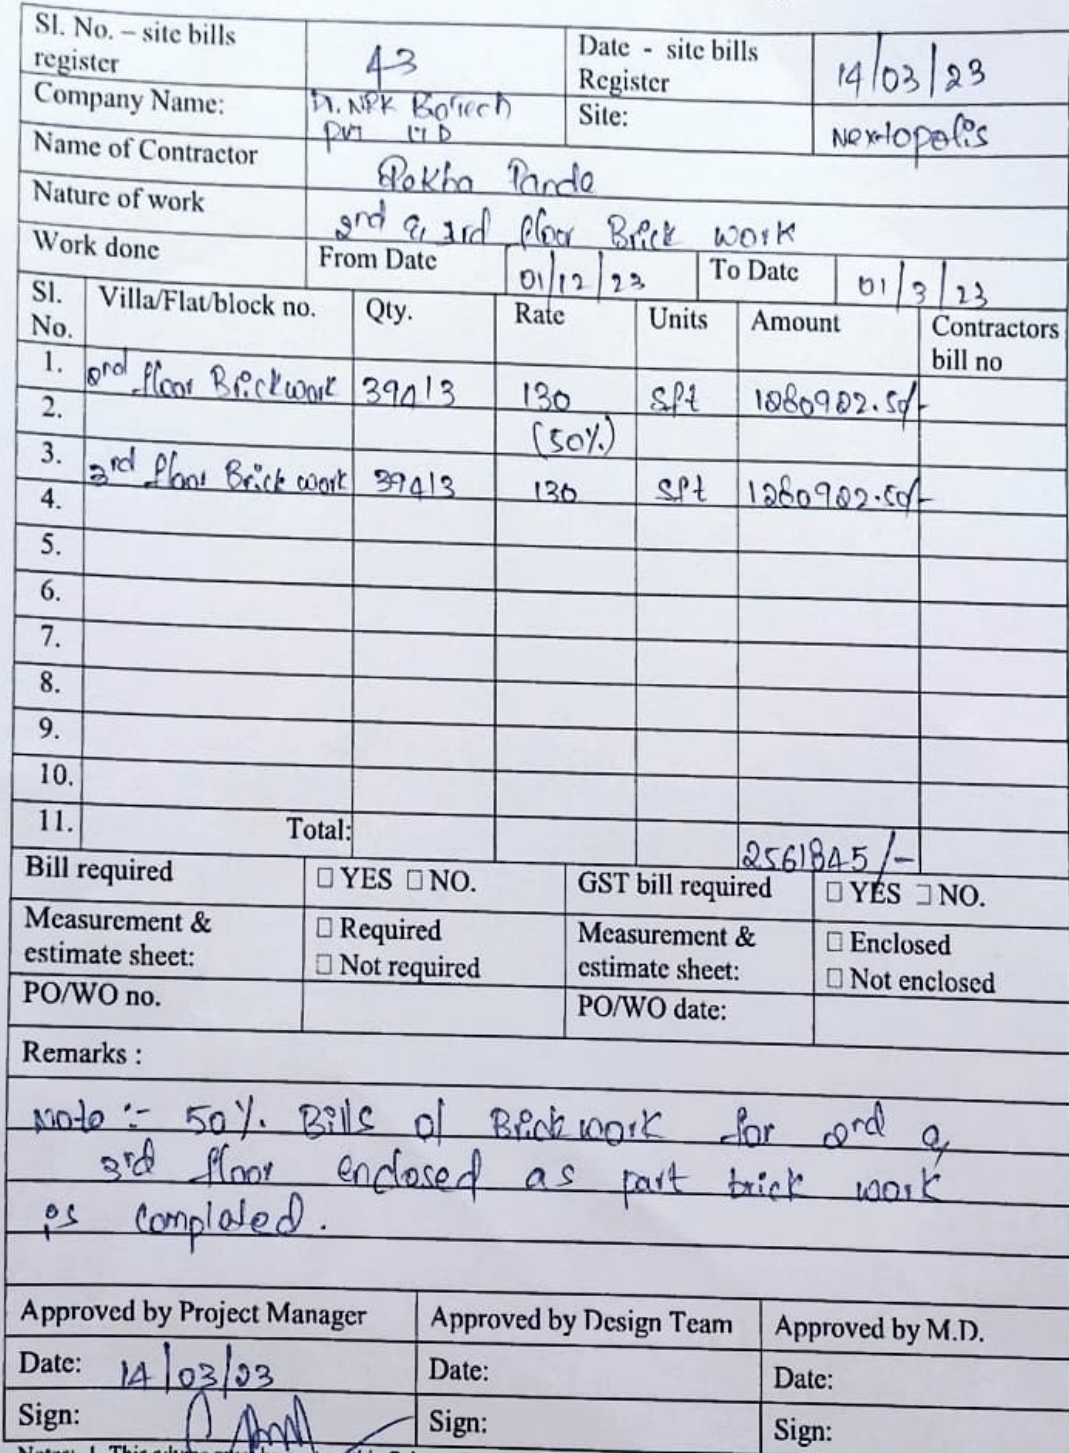 Sl. No. – site bills register 43 Date - site bills Register 14/03/23
Company Name: NRK Biotech Pvt LTD Site: Nextopolis
Name of Contractor Pokha Panda
Nature of work 2nd & 3rd floor Brick work
Work done From Date 01/12/23 To Date 01/3/23
Sl. No. Villa/Flat/block no. Qty. Rate Units Amount Contractors bill no
1. 2nd floor Brickwork 39413 130 Sft 1280922.50/-
2. (50%)
3. 3rd floor Brick work 39413 130 Sft 1280922.50/-
4.
5.
6.
7.
8.
9.
10.
11. Total: 2561845/-
Bill required □ YES □ NO. GST bill required □ YES □ NO.
Measurement & estimate sheet: □ Required □ Not required Measurement & estimate sheet: □ Enclosed □ Not enclosed
PO/WO no. PO/WO date:
Remarks :
Note :- 50% Bills of Brick work for 2nd &
3rd floor enclosed as part brick work
is completed.
Approved by Project Manager Approved by Design Team Approved by M.D.
Date: 14/03/23 Date: Date:
Sign: Sign: Sign: